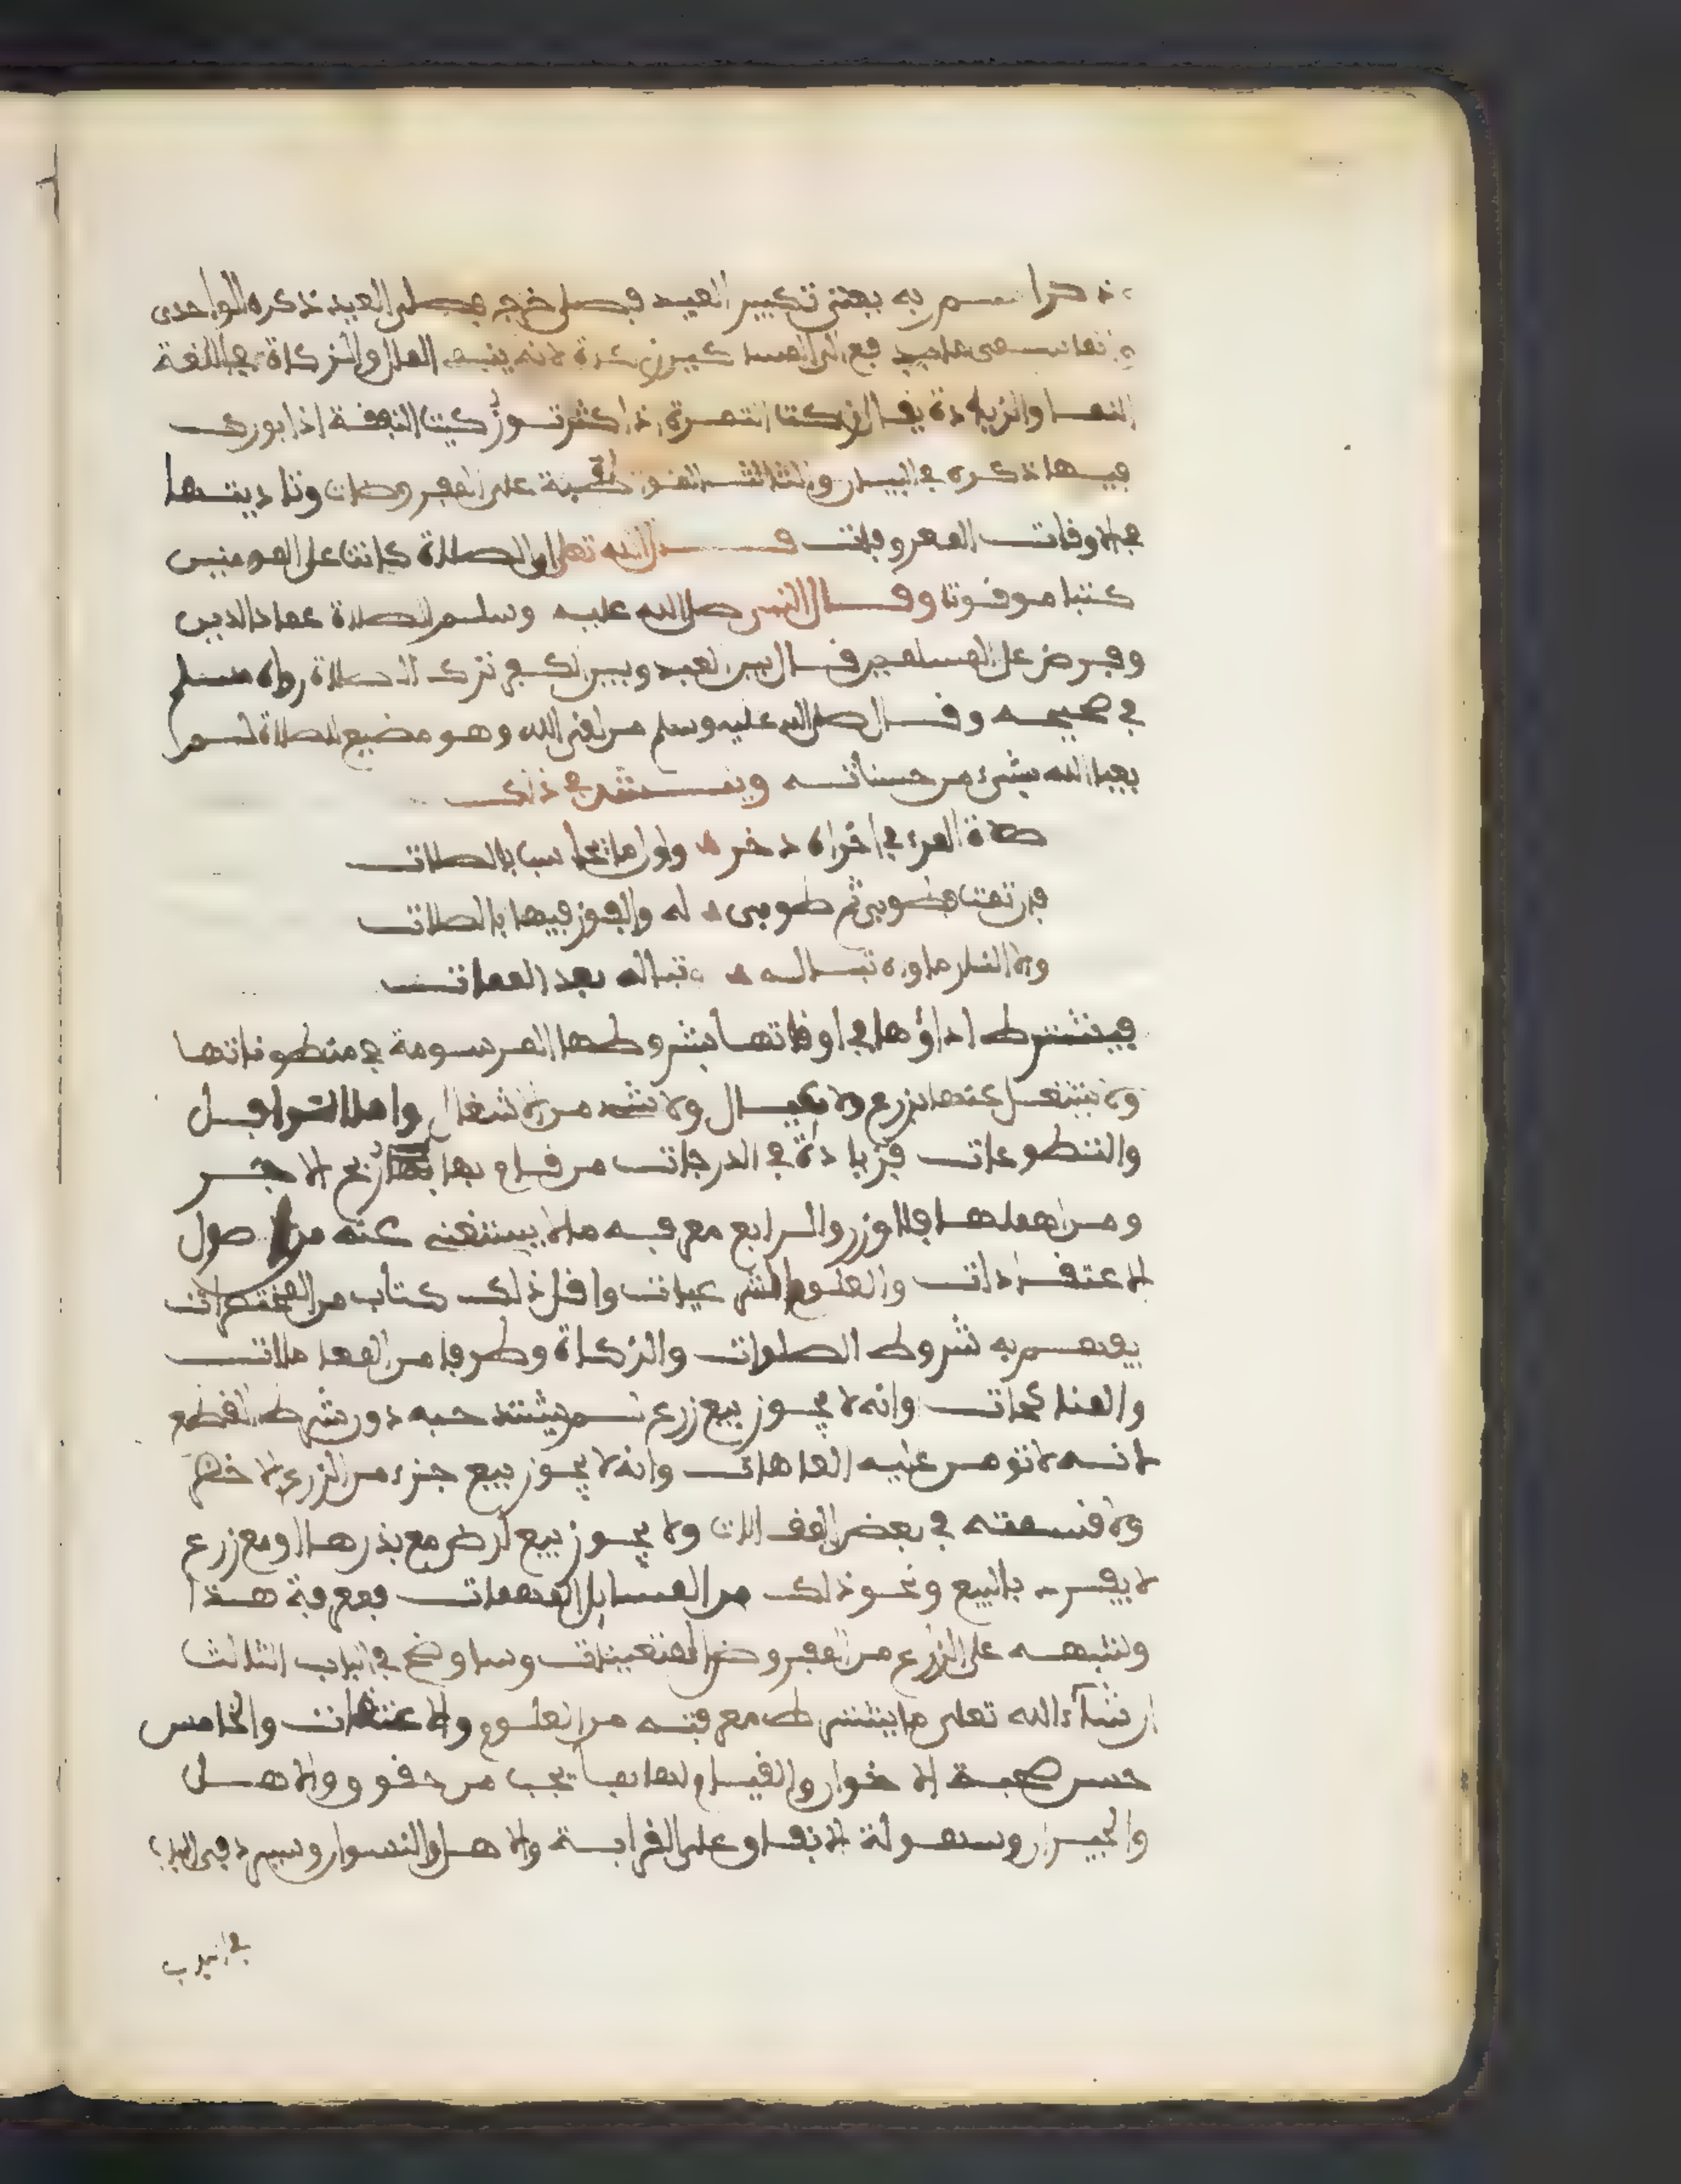 ذكر اسم به يعني تكبير العيد فصلى خرج فصلى العيد ذكره الواحدي
لانه ينمي المال والزكاة في اللغة
النما والزيادة يقال زكت الثمرة اذا كثرت وزكيت النفقة اذا بورك
فيها ذكره في البيان والثالث المواظبة على المفروضات وتاديتها
في الاوقات المعروفات قال الله تعالى ان الصلاة كانت على المومنين
كتبا موقوتا وقال النبي صلى الله عليه وسلم الصلاة عماد الدين
وفرض على المسلمين قال بين العبد وبين الكفر ترك الصلاة رواه مسلم
في صحيحه وقال صلى الله عليه وسلم من لقي الله وهو مضيع للصلاة لم
يعبا الله بشيء من حسناته وينشد في ذلك
صلاة المرء في اخراه دخر واول ما يحاسب بالصلات
فان تمت فطوبى ثم طوبى له والفوز فيها بالصلات
والا النار ماواه تبا له تبا له بعد الممات
فيشترط اداؤها في اوقاتها بشروطها المرسومة في منطوقاتها
ولا يشتغل عنها بزرع ولا بعيال ولا بشيء من الاشغال واما النوافل
والتطوعات فزيادة في الدرجات من قام بها ربح الاجر
ومن اهملها فلا وزر والرابع معرفة ما لا يستغنى عنه من اصول
الاعتقادات والعلوم الشرعيات واقل ذلك كتاب من المختصرات
يفهم به شروط الصلوات والزكاة وطرفا من المعاملات
والمناكحات وانه لا يجوز بيع زرع لم يشتد حبه دون شرط القطع
لانه لا تومن عليه العاهات وانه لا يجوز بيع جزء من الزرع الاخضر
ولا قسمته في بعض المقالات ولا يجوز بيع ارض مع بذرها او مع زرع
لا يفرد بالبيع ونحو ذلك من المسايل المهمات فمعرفة هذا
وشبهه على الزارع من الفروض المتعينات وساوضح في الباب الثالث
ان شاء الله تعلى ما يشترط معرفته من العلوم والاعتقادات والخامس
حسن صحبة الاخوان والقيام لهم بما يجب من حقوق والاهل
والجيران وسهولة الانفاق على القرابة والاهل والنسوان وسيرد في الباب
في الباب